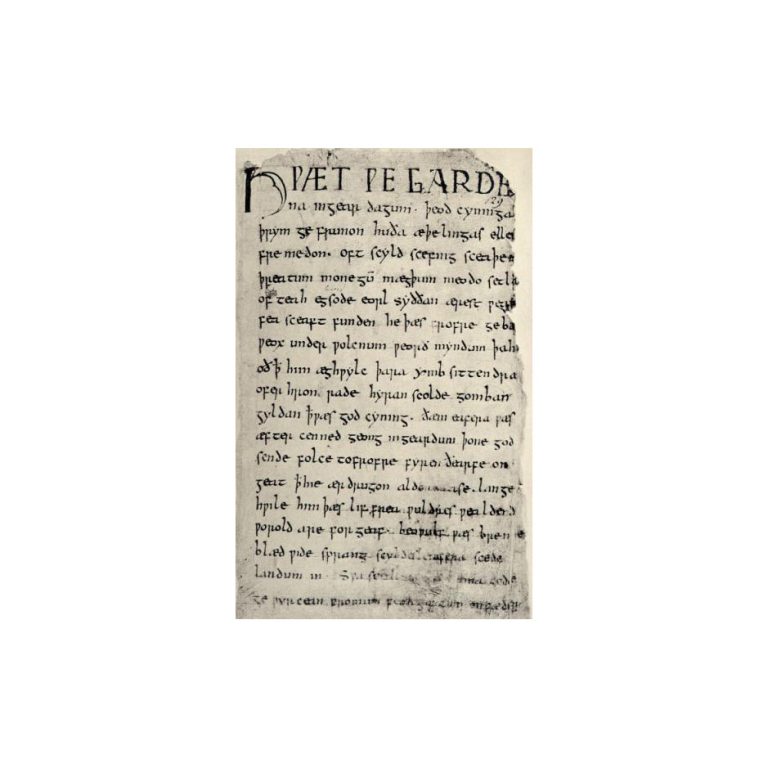 HǷÆT ǷE GARDE
na ingear dagum. þeod cyninga
þrym ge frunon huða æþelingas ellen
fremedon. oft scyld scefing sceaþena
þreatum monegū mægþum meodo setla
of teah egsode eorl syððan ærest
fea sceaft funden he þæs frofre geba
ƿeox under ƿolcnum ƿeorð myndum þah
oð ꝥ him æghƿylc þara ymb sittendra
ofer hron rade hyran scolde gomban
gyldan ꝥ ƿæs god cyning. ðæm eafera ƿæs
æfter cenned geong ingeardum þone god
sende folce tofrofre fyren ðearfe on
geat ꝥ hie ær drugon aldor ase. lange
hƿile him þæs lif frea ƿuldres ƿealdend
ƿorold are for geaf. beoƿulf ƿæs breme
blæd ƿide sprang scyldes eafera scede
landum in. Sƿa sceal ma gode
ge ƿyrcean fromum feoh giftum